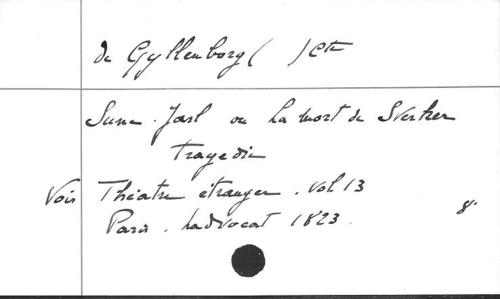 de Gyllenborg ( ) Cte
Sune. Jarl ou La mort de Sverker
Tragedie
Voir Théatre étranger. vol 13
Paris. Ladvocat 1823. 8°